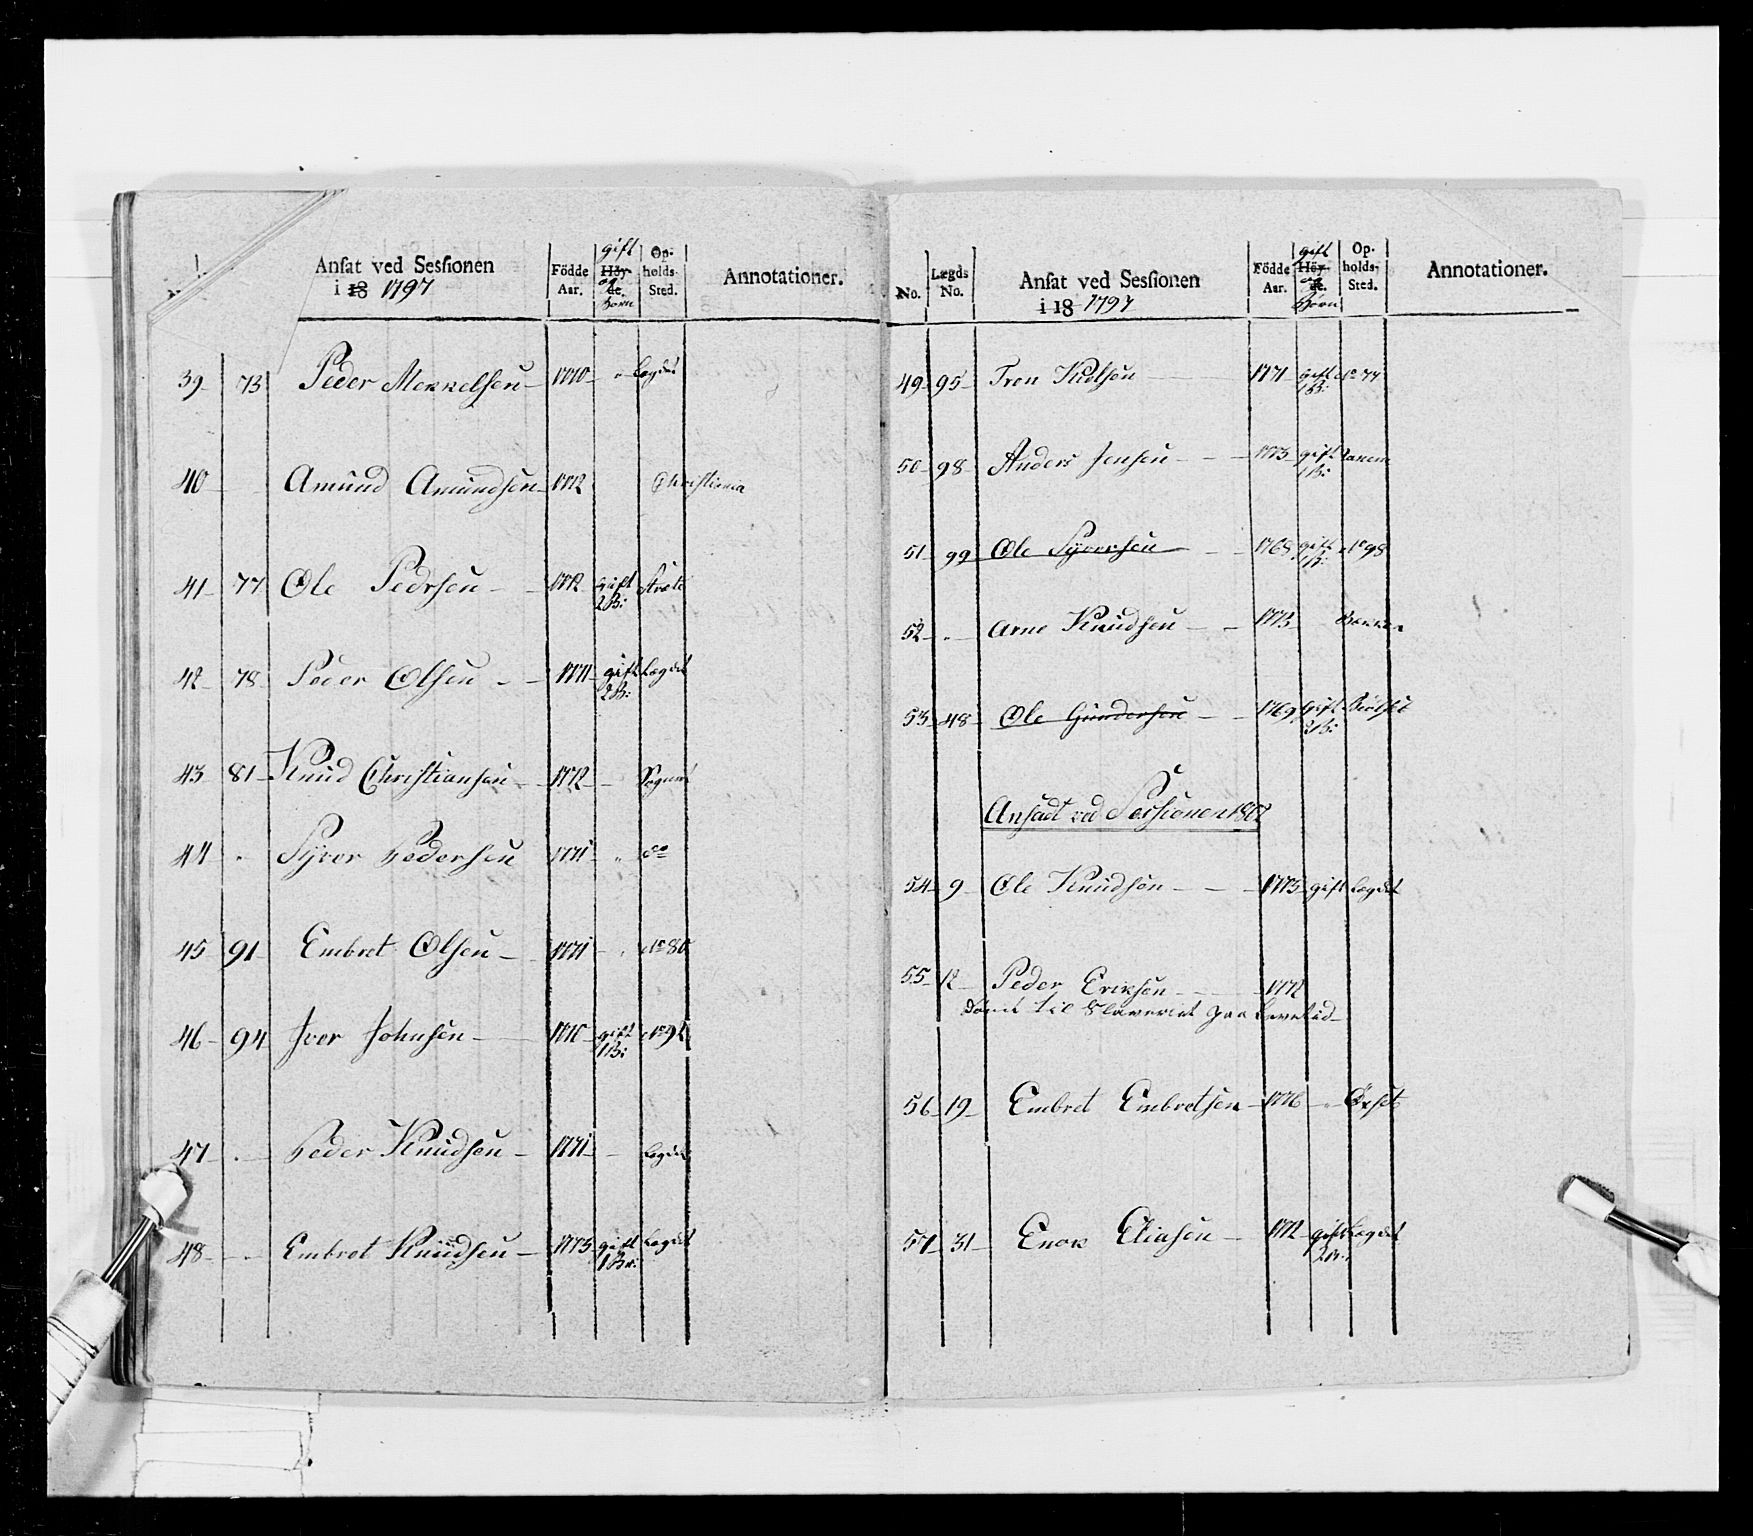 Ansat ved Sessionen i 18 1797 Födde Aar. gift Höy- og de. Børn Op- holds- Sted. Annotationer.
39 73 Peder Mekkelsen 1770 " Legdet
40 Amund Amundsen 1772 Christiania
41 77 Ole Pedrsen 1772 gift 2 B:
42 78 Peder Olsen 1771 gift 2 B: Legdet
43 81 Knud Christiansen 1772
44 " Syver Pedersen 1771 " do
45 91 Embret Olsen 1771 " No 80
46 94 Iver Johnsen 1770 gift 1 B: No 92
47 " Peder Knudsen 1771 Legdet
48 " Embret Knudsen 1773 gift 1 Br: Legdet
No. Lægds No. Ansat ved Sessionen i 18 1797 Födde Aar. gift Höy- og de. Børn Op- holds- Sted. Annotationer.
49 95 Tron 1771 gift 1 B: No 77
50 98 Anders Jensen 1773 gift 1 B:
51 99 Ole Syversen 1768 gift 1 B: No 98
52 " Arne Knudsen 1773
53 48 Ole Gundersen 1769 gift 2 B:
Ansadt ved Sessionen 1802
54 9 Ole Knudsen 1775 gift Legdet
55 12 Peder Eriksen 1772
Dømt til Slaveriet paa Levetid
56 19 Embret Embretsen 1776 "
57 31 Enok Eliasen 1772 gift 2 B: Legdet